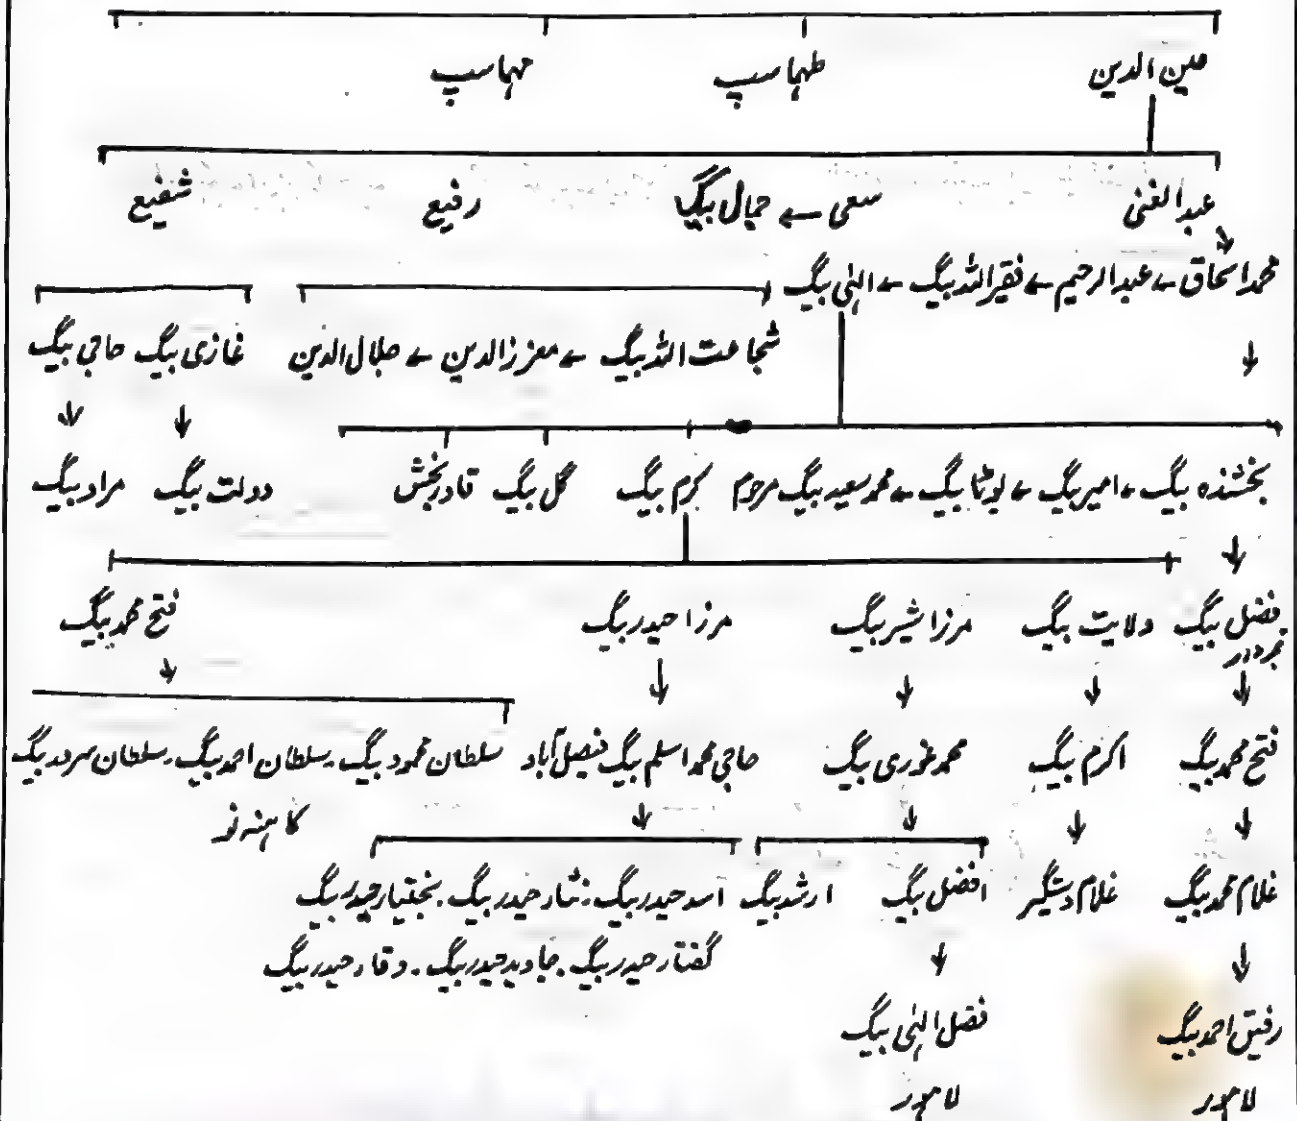 معین الدین طہماسپ مہماسپ
عبدالغنی سعی ے جمال بیگ رفیع شفیع
محمد اسحاق ے عبدالرحیم ے فقیر اللہ بیگ ے الہٰی بیگ
شجاعت اللہ بیگ ے معززالدین ے جلال الدین غازی بیگ حاجی بیگ
بخشندہ بیگ ے امیر بیگ ے بوٹا بیگ ے محمد سعید بیگ مرحوم کرم بیگ گل بیگ قادر بخش دولت بیگ مراد بیگ
فضل بیگ ولایت بیگ مرزا شیر بیگ مرزا حیدر بیگ فتح محمد بیگ
نمبردار
فتح محمد بیگ اکرم بیگ محمد غوری بیگ حاجی محمد اسلم بیگ فیصل آباد سلطان محمود بیگ۔سلطان احمد بیگ۔سلطان سرمد بیگ
کاہنہ نو
غلام محمد بیگ غلام دستگیر افضل بیگ ارشد بیگ اسد حیدر بیگ۔نثار حیدر بیگ۔بختیار حیدر بیگ
گفتار حیدر بیگ۔جاوید حیدر بیگ۔وقار حیدر بیگ
رفیق احمد بیگ فضل الہٰی بیگ
لاہور لاہور